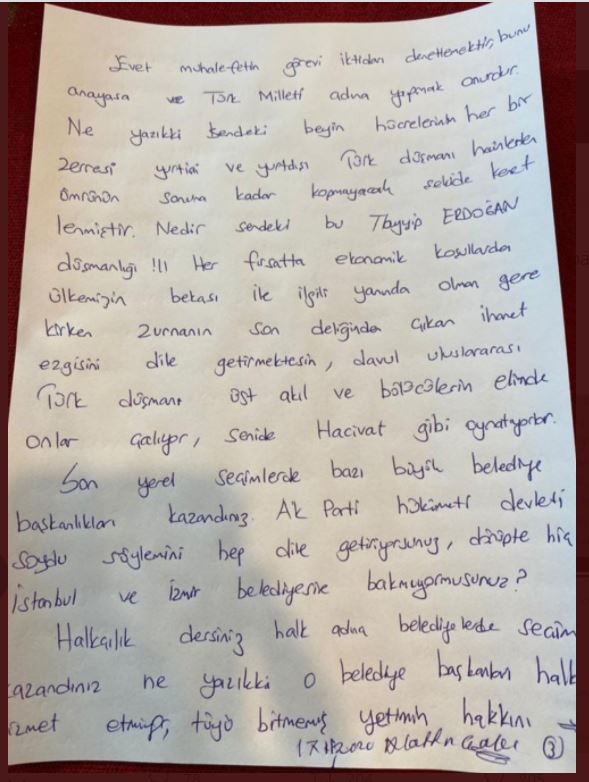 Evet muhalefetin görevi iktidarı denetlemektir, bunu
anayasa ve Türk Milleti adına yapmak onurdur.
Ne yazıkki sendeki beyin hücrelerinin her bir
zerresi yurtiçi ve yurtdışı Türk düşmanı hainlerden
ömrünün sonuna kadar kopmayacak şekide kenet
lenmiştir. Nedir sendeki bu Tayyip ERDOĞAN
düşmanlığı !!! Her fırsatta ekonomik koşullarda
ülkemizin bekası ile ilgili yanında olman gere
kirken zurnanın son deliğinden çıkan ihanet
ezgisini dile getirmektesin, davul uluslararası
Türk düşmanı üst akıl ve bölücülerin elinde
onlar çalıyor, senide Hacivat gibi oynatıyorlar.
Son yerel seçimlerde bazı büyük belediye
başkanlıkları kazandınız. AK Parti hükümeti devleti
soydu söylemini hep dile getiriyorsunuz, dönüpte hiç
İstanbul ve İzmir belediyesine bakmıyormusunuz?
Halkçılık dersiniz halk adına belediyelerde seçim
kazandınız ne yazıkki o belediye başkanları halk
izmet etmiyor, tüyü bitmemiş yetimin hakkını →
2020 Alaattin 3